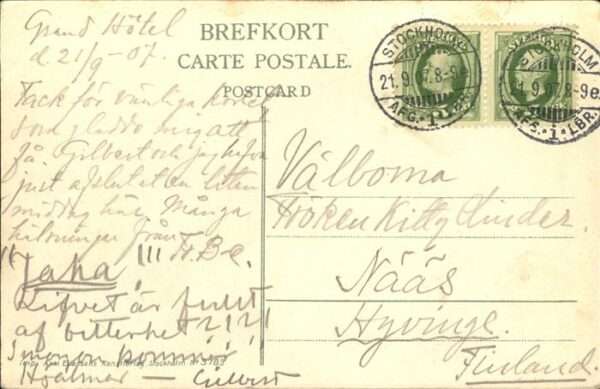 BREFKORT
CARTE POSTALE.
POSTCARD
Grand Hôtel
d. 21/9 -07.
Tack för vänliga kortet
som gladde mig att
få. Gilbert och jag hafva
just afslutat en liten
middag här. Många
hälsningar från
H.B-e.
"Jaha"!!!
Lifvet är fullt
af bitterhet?!?!
Hjalmar — Gilbert
STOCKHOLM
21.9.07.8-9e.
AFG. 1 LBR.
STOCKHOLM
21.9.07.8-9e.
AFG. 1. LBR.
Välborna
Fröken Kitty Linder.
Nääs
Hyvinge.
Finland.